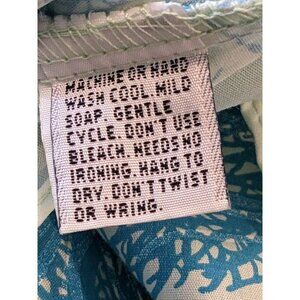 MACHINE OR HAND
WASH COOL. MILD
SOAP. GENTLE
CYCLE. DON'T USE
BLEACH. NEEDS NO
IRONING. HANG TO
DRY. DON'T TWIST
OR WRING.